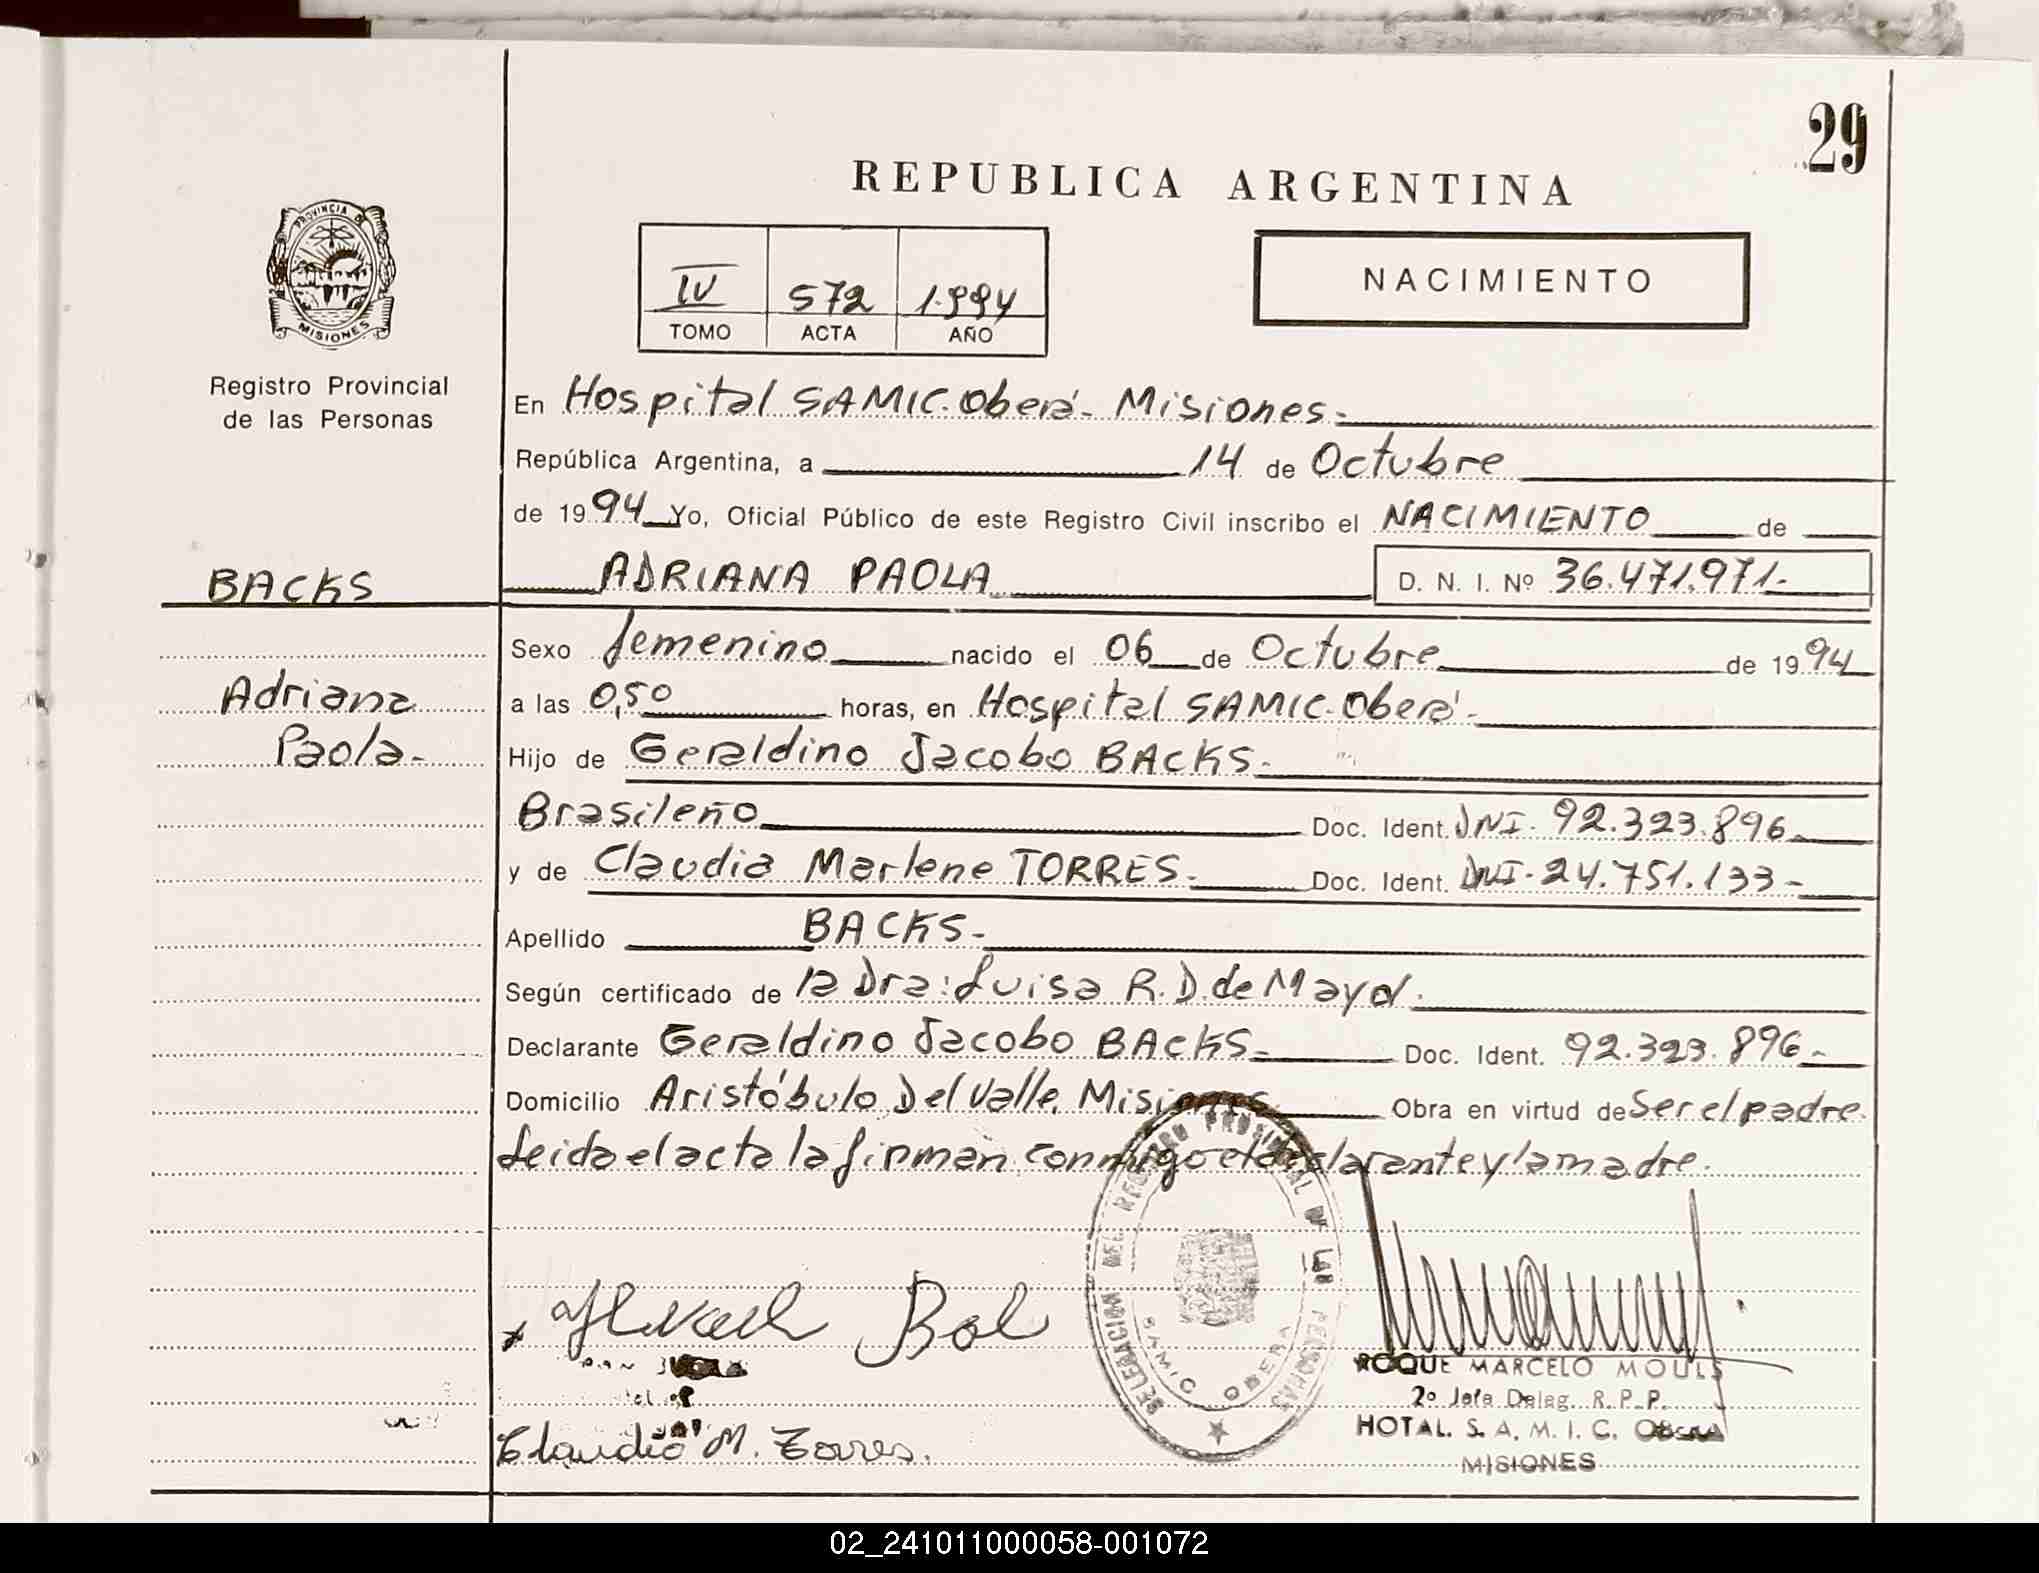 29
REPUBLICA ARGENTINA
PROVINCIA DE
MISIONES
IV 572 1.994
TOMO ACTA AÑO
NACIMIENTO
Registro Provincial
de las Personas
En Hospital SAMIC. Oberá - Misiones.-
República Argentina, a 14 de Octubre
de 1994 Yo, Oficial Público de este Registro Civil inscribo el NACIMIENTO de
BACKS
ADRIANA PAOLA D. N. I. Nº 36.471.971.-
Sexo femenino nacido el 06 de Octubre de 1994
Adriana
Paola.-
a las 0,50 horas, en Hospital SAMIC. Oberá.-
Hijo de Geraldino Jacobo BACKS.-
Brasileño Doc. Ident. DNI. 92.323.896.-
y de Claudia Marlene TORRES.- Doc. Ident. DNI. 24.751.133-
Apellido BACKS.-
Según certificado de la Dra: Luisa R. D. de Mayol.
Declarante Geraldino Jacobo BACKS.- Doc. Ident. 92.323.896.-
Domicilio Aristóbulo Del Valle. Misiones Obra en virtud de Ser el padre.
Leida el acta la firman conmigo el declarante y la madre.
DELEGACION DEL REGISTRO PROVINCIAL DE LAS PERSONAS
SAMIC OBERA
ROQUE MARCELO
2º Jefe Deleg. R. P. P.
HOTAL. S. A. M. I. C. Oberá
MISIONES
Claudia M. Torres.
02_241011000058-001072